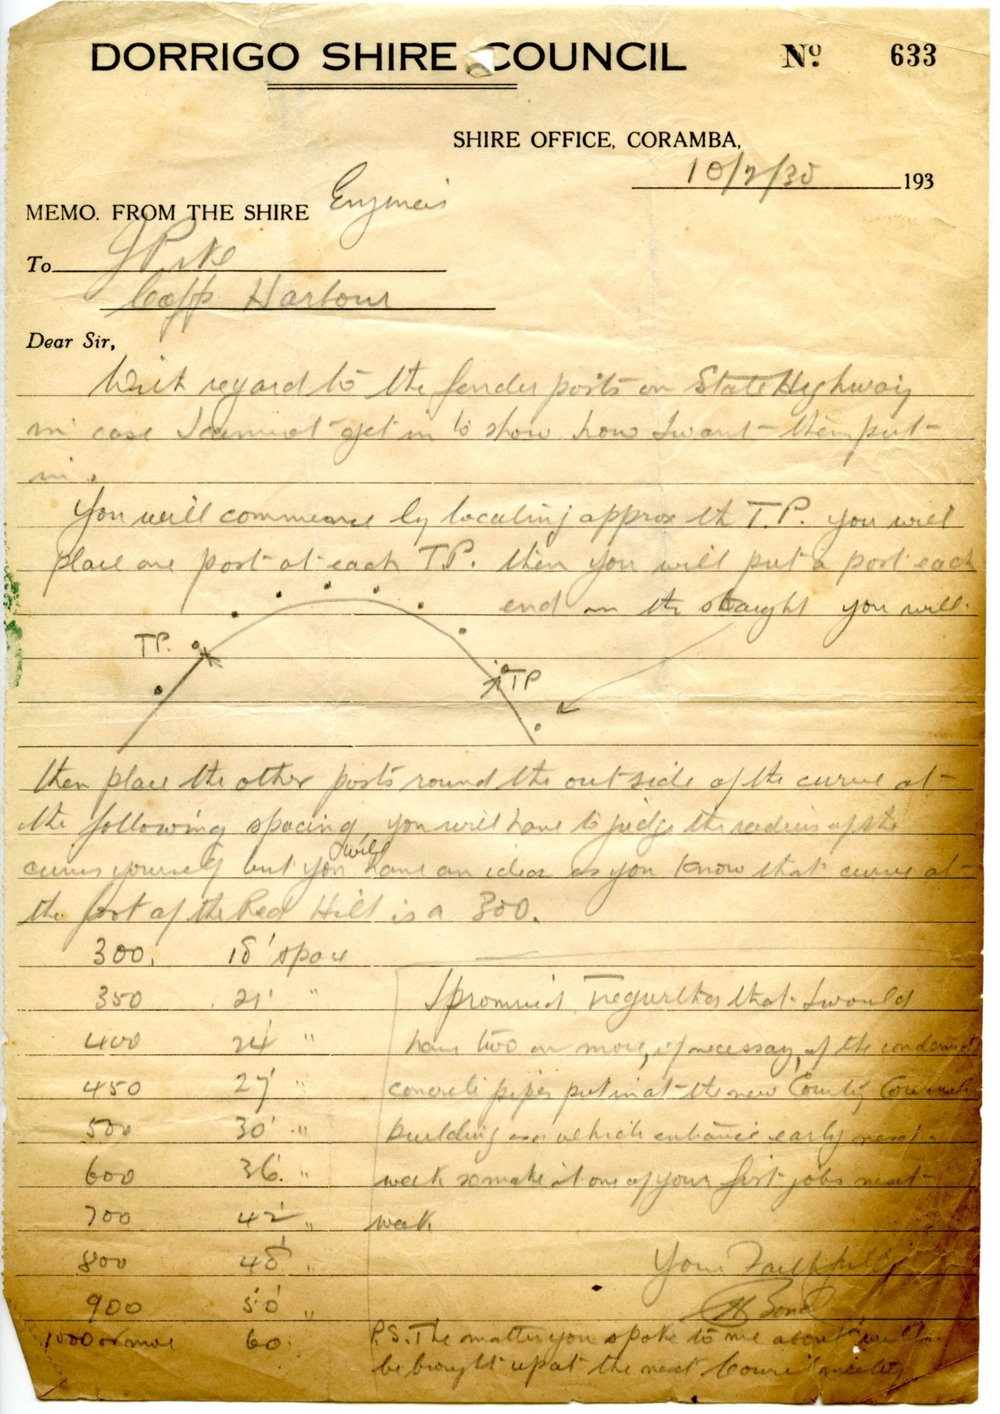 DORRIGO SHIRE COUNCIL Nº 633
SHIRE OFFICE, CORAMBA,
10/2/35 193
MEMO. FROM THE SHIRE Engineer
To J Pike
Coffs Harbour
Dear Sir,
With regard to the fender posts on State Highway
in case I cannot get in to show how I want them put
in.
You will commence by locating approx the T.P. you will
place one post at each TP. then you will put a post each
end on the straight you will
TP.
TP
then place the other posts round the outside of the curve at
the following spacing, you will have to judge the radius of the
curves yourself but you will have an idea as you know that curve at
the foot of the Red Hill is a 300.
300. 18' space
350 21' "
400 24' "
450 27' "
500 30' "
600 36' "
700 42' "
800 48' "
900 50' "
1000 or more 60.
I promised that I would
have two or more, if necessary, of the condemned
concrete pipes put in at the new County Council
building as a vehicle entrance early next
week so make it one of your first jobs next
week
Yours Faithfully
Bond
P.S. The matter you spoke to me about will
be brought up at the next Council meeting